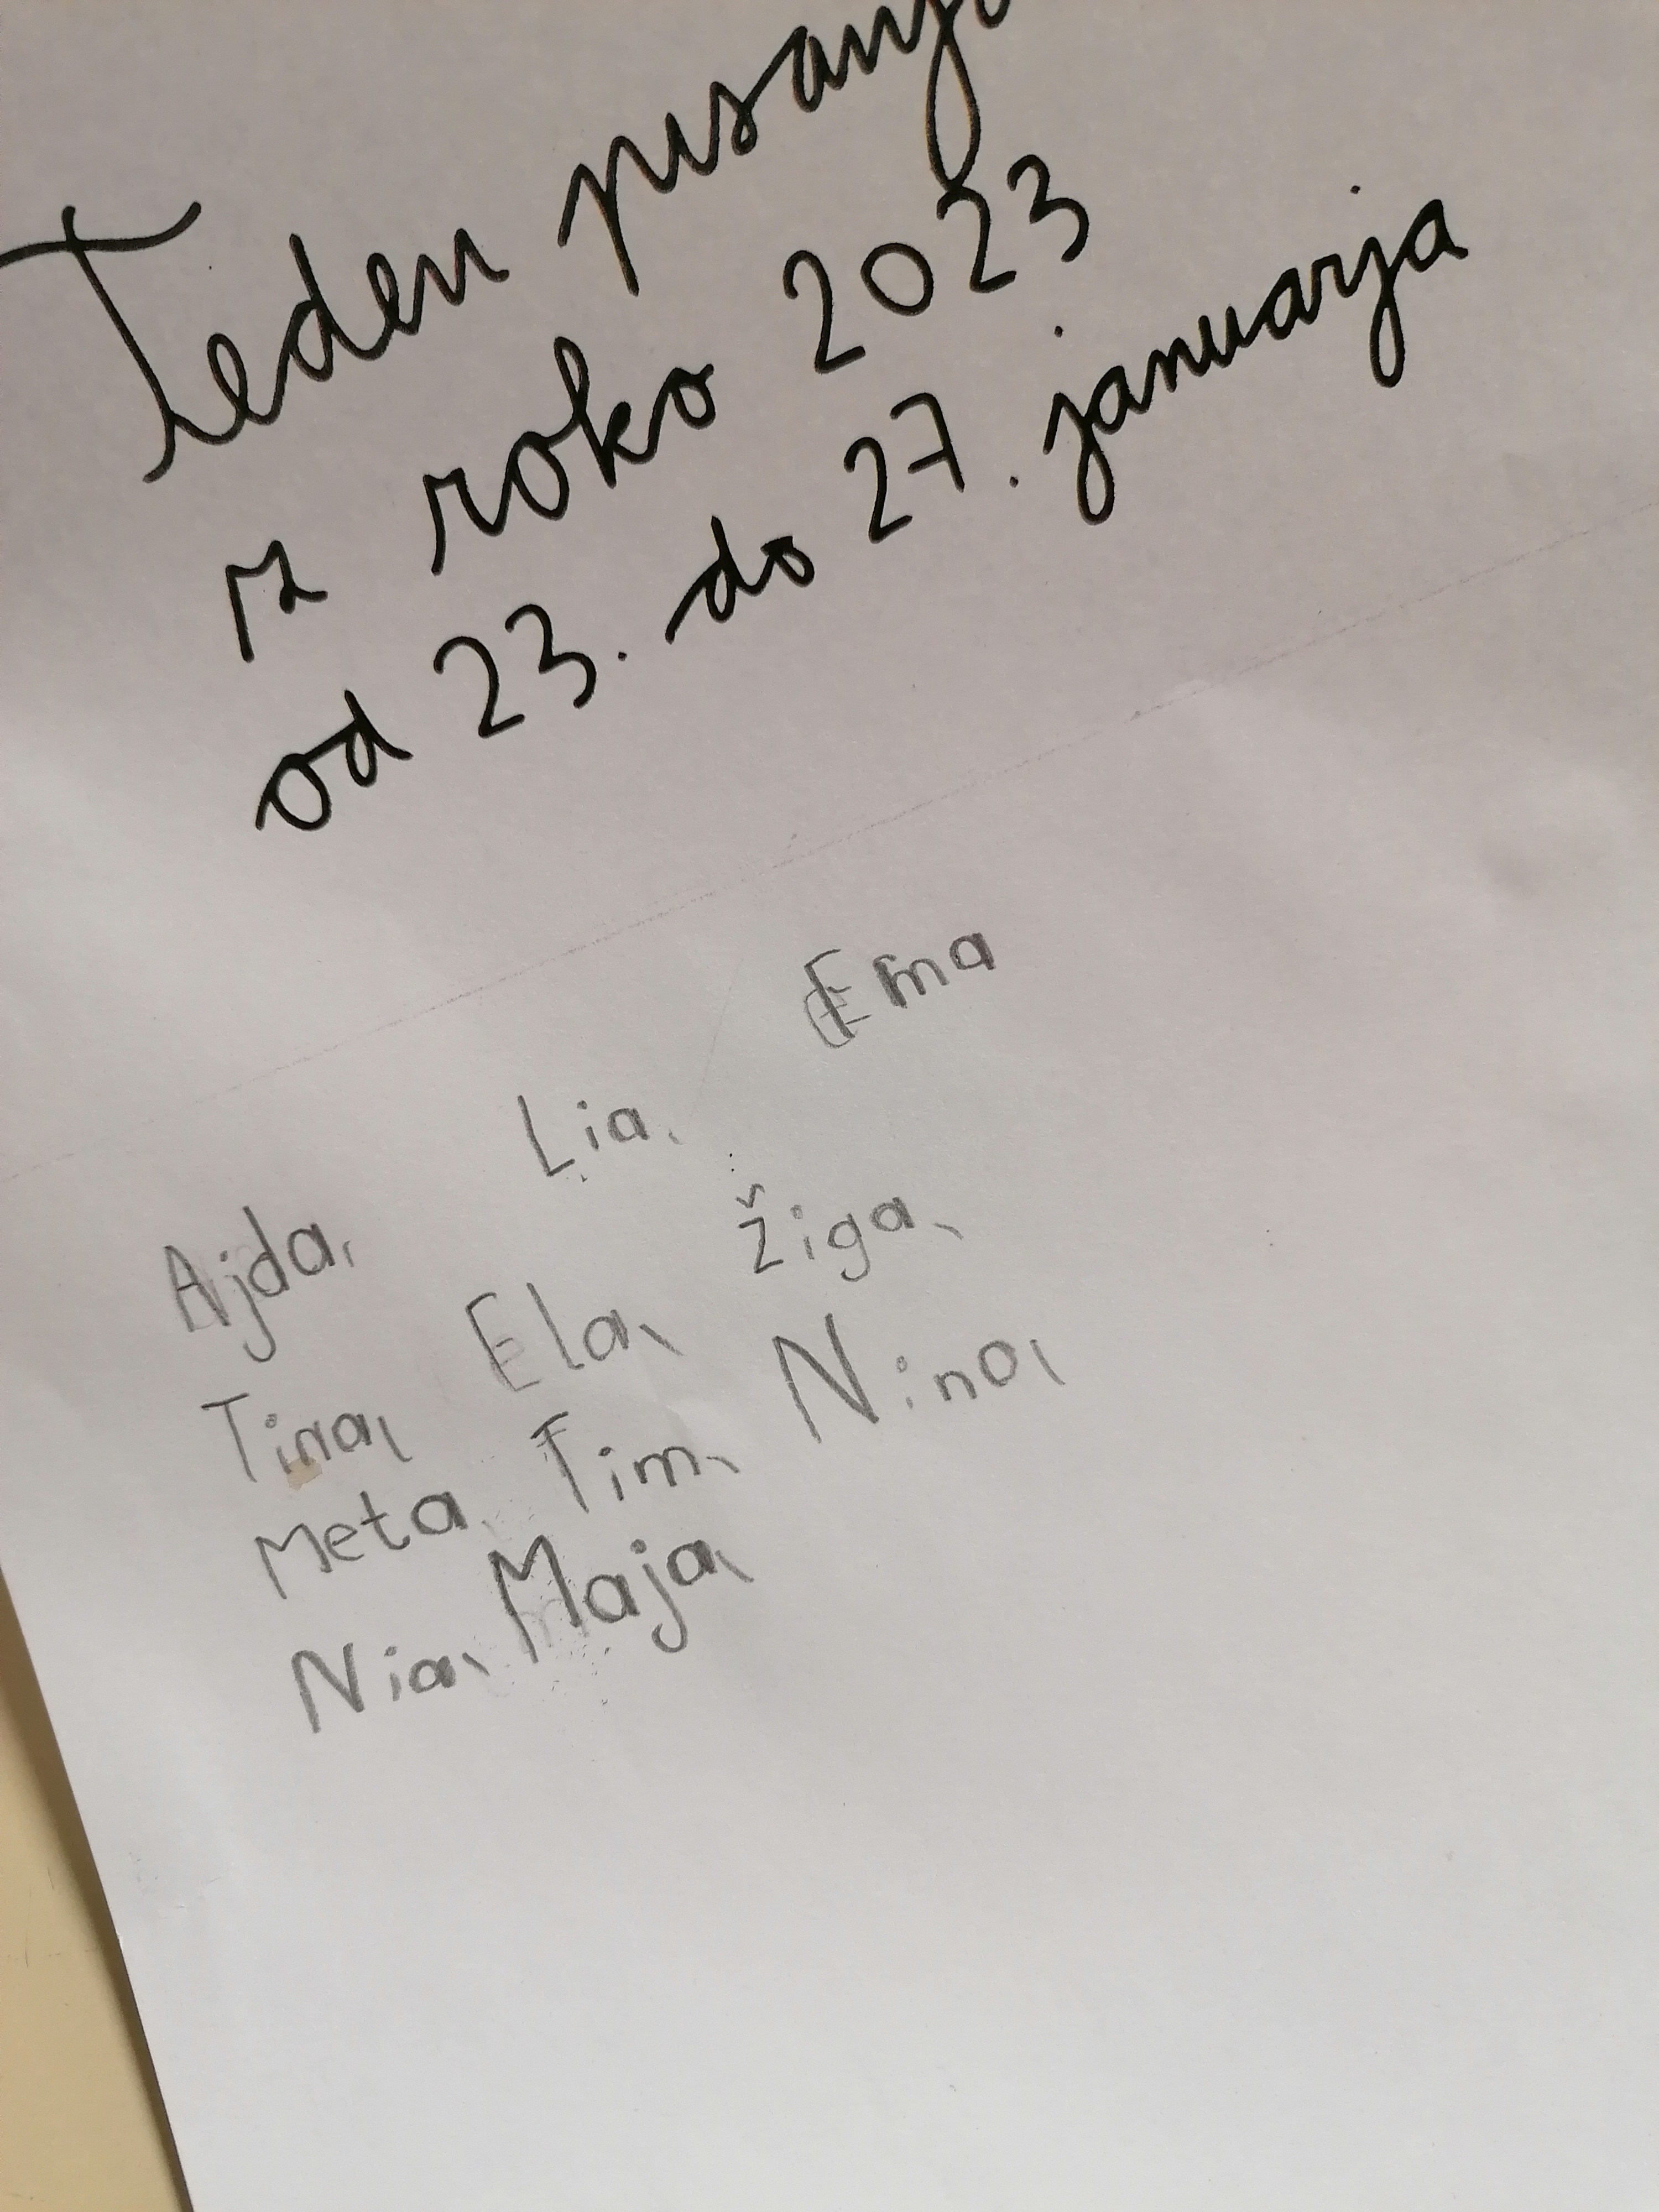 Teden pisanja
z roko 2023
od 23. do 27. januarja
Ajda, Lia, Ema
Tina, Ela, Žiga,
Meta, Tim, Nina,
Nia, Maja,